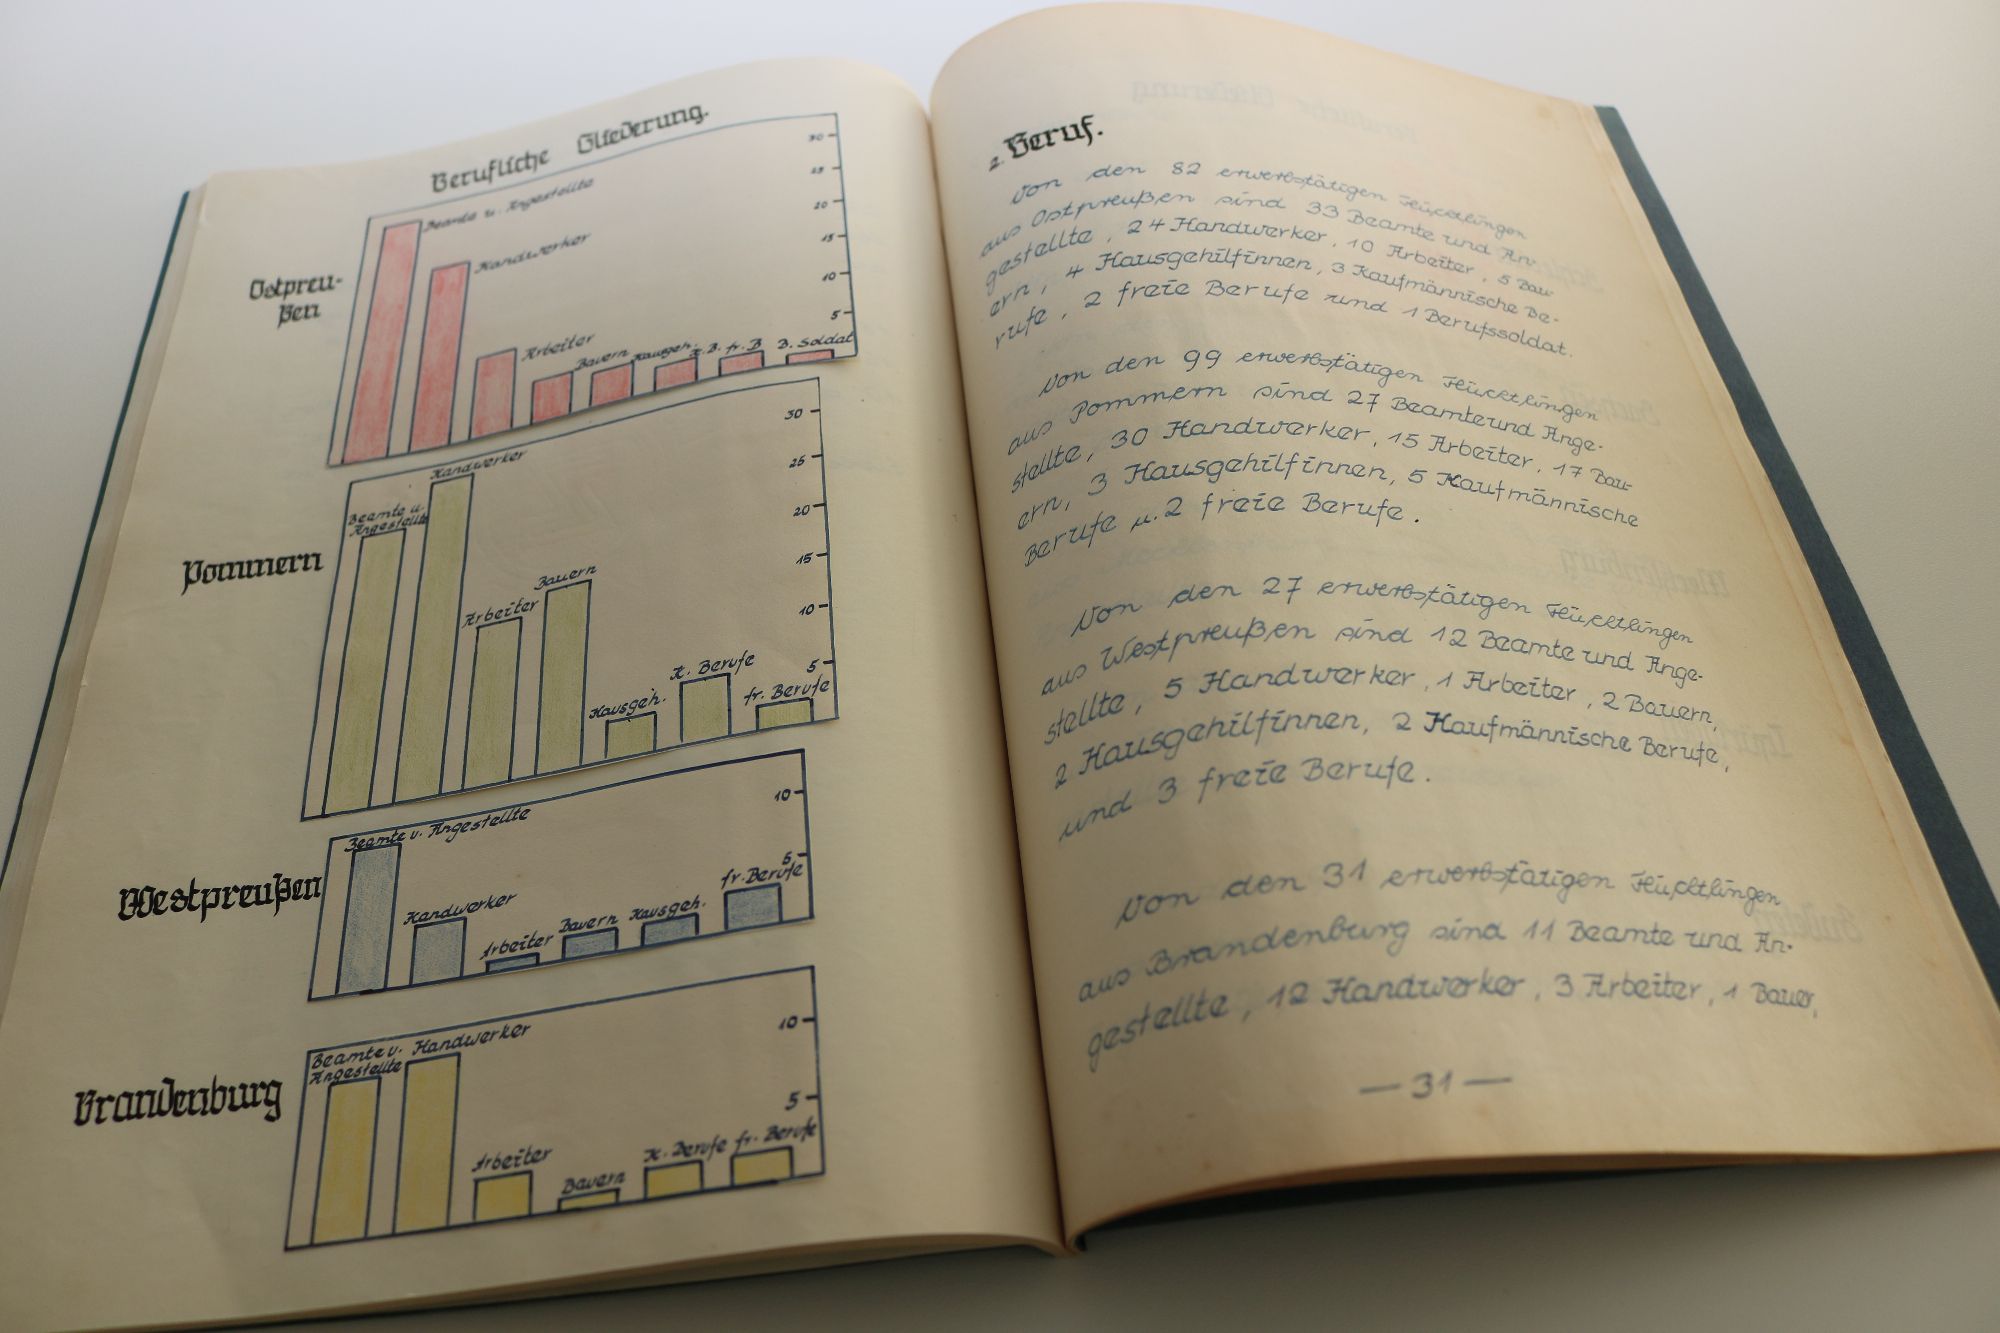 Berufliche Gliederung.
Ostpreu-
ßen
Beamte u. Angestellte
Handwerker
Arbeiter
Bauern
Hausgeh.
K. B.
fr. B
B. Soldat
30
25
20
15
10
5
Pommern
Beamte u.
Angestellte
Handwerker
Arbeiter
Bauern
Hausgeh.
K. Berufe
fr. Berufe
30
25
20
15
10
5
Westpreußen
Beamte u. Angestellte
Handwerker
Arbeiter
Bauern
Hausgeh.
fr. Berufe
10
5
Brandenburg
Beamte u.
Angestellte
Handwerker
Arbeiter
Bauern
K. Berufe
fr. Berufe
10
5
2. Beruf.
Von den 82 erwerbstätigen Flüchtlingen
aus Ostpreußen sind 33 Beamte und An-
gestellte, 24 Handwerker, 10 Arbeiter, 5 Bau-
ern, 4 Hausgehilfinnen, 3 Kaufmännische Be-
rufe, 2 freie Berufe und 1 Berufssoldat.
Von den 99 erwerbstätigen Flüchtlingen
aus Pommern sind 27 Beamte und Ange-
stellte, 30 Handwerker, 15 Arbeiter, 17 Bau-
ern, 3 Hausgehilfinnen, 5 Kaufmännische
Berufe u. 2 freie Berufe.
Von den 27 erwerbstätigen Flüchtlingen
aus Westpreußen sind 12 Beamte und Ange-
stellte, 5 Handwerker, 1 Arbeiter, 2 Bauern,
2 Hausgehilfinnen, 2 Kaufmännische Berufe,
und 3 freie Berufe.
Von den 31 erwerbstätigen Flüchtlingen
aus Brandenburg sind 11 Beamte und An-
gestellte, 12 Handwerker, 3 Arbeiter, 1 Bauer,
— 31 —